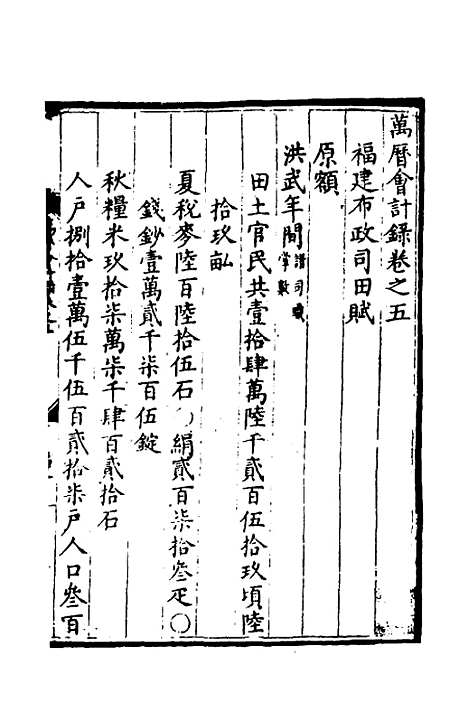 萬曆會計録卷之五
福建布政司田賦
原額
洪武年間諸司職掌數
田土官民共壹拾肆萬陸千貳百伍拾玖頃陸
拾玖畝
夏稅麥陸百陸拾伍石○絹貳百柒拾叁疋○
錢鈔壹萬貳千柒百伍錠
秋糧米玖拾柒萬柒千肆百貳拾石
人戶捌拾壹萬伍千伍百貳拾柒戶人口叁百